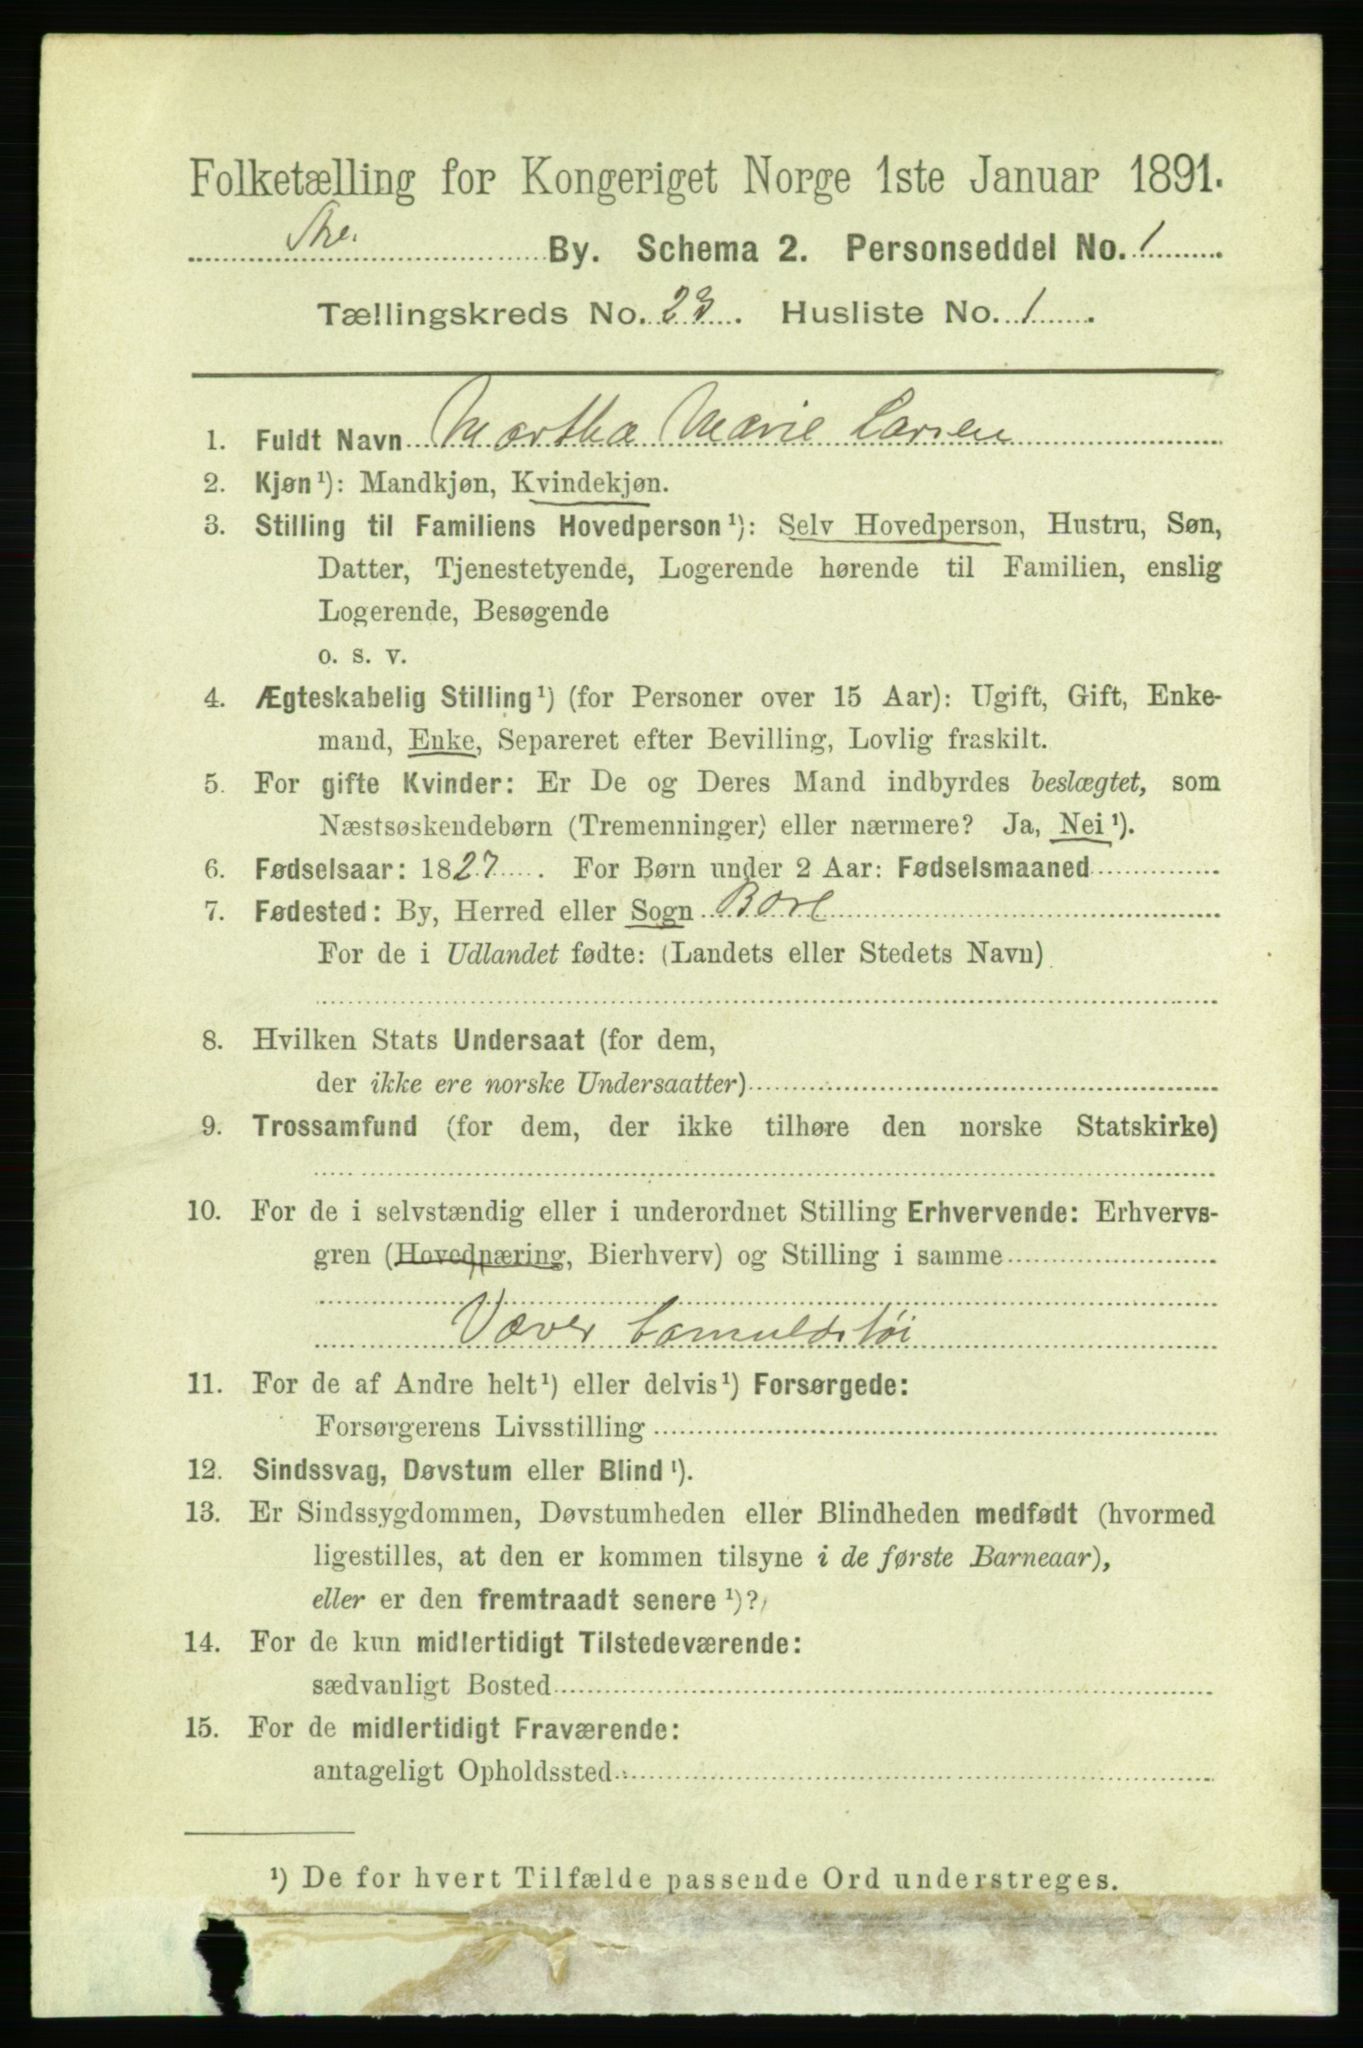 Folketælling for Kongeriget Norge 1ste Januar 1891.
By. Schema 2. Personseddel No. 1
Tællingskreds No. 23. Husliste No. 1.
1. Fuldt Navn Martha Marie Larsen
2. Kjøn¹): Mandkjøn, Kvindekjøn.
3. Stilling til Familiens Hovedperson¹): Selv Hovedperson, Hustru, Søn,
Datter, Tjenestetyende, Logerende hørende til Familien, enslig
Logerende, Besøgende
o. s. v.
4. Ægteskabelig Stilling¹) (for Personer over 15 Aar): Ugift, Gift, Enke-
mand, Enke, Separeret efter Bevilling, Lovlig fraskilt.
5. For gifte Kvinder: Er De og Deres Mand indbyrdes beslægtet, som
Næstsøskendebørn (Tremenninger) eller nærmere? Ja, Nei¹).
6. Fødselsaar: 1827. For Børn under 2 Aar: Fødselsmaaned
7. Fødested: By, Herred eller Sogn Bore
For de i Udlandet fødte: (Landets eller Stedets Navn)
8. Hvilken Stats Undersaat (for dem,
der ikke ere norske Undersaatter)
9. Trossamfund (for dem, der ikke tilhøre den norske Statskirke)
10. For de i selvstændig eller i underordnet Stilling Erhvervende: Erhvervs-
gren (Hovednæring, Bierhverv) og Stilling i samme
Væver
11. For de af Andre helt¹) eller delvis¹) Forsørgede:
Forsørgerens Livsstilling
12. Sindssvag, Døvstum eller Blind¹).
13. Er Sindssygdommen, Døvstumheden eller Blindheden medfødt (hvormed
ligestilles, at den er kommen tilsyne i de første Barneaar),
eller er den fremtraadt senere¹)?
14. For de kun midlertidigt Tilstedeværende:
sædvanligt Bosted
15. For de midlertidigt Fraværende:
antageligt Opholdssted
¹) De for hvert Tilfælde passende Ord understreges.